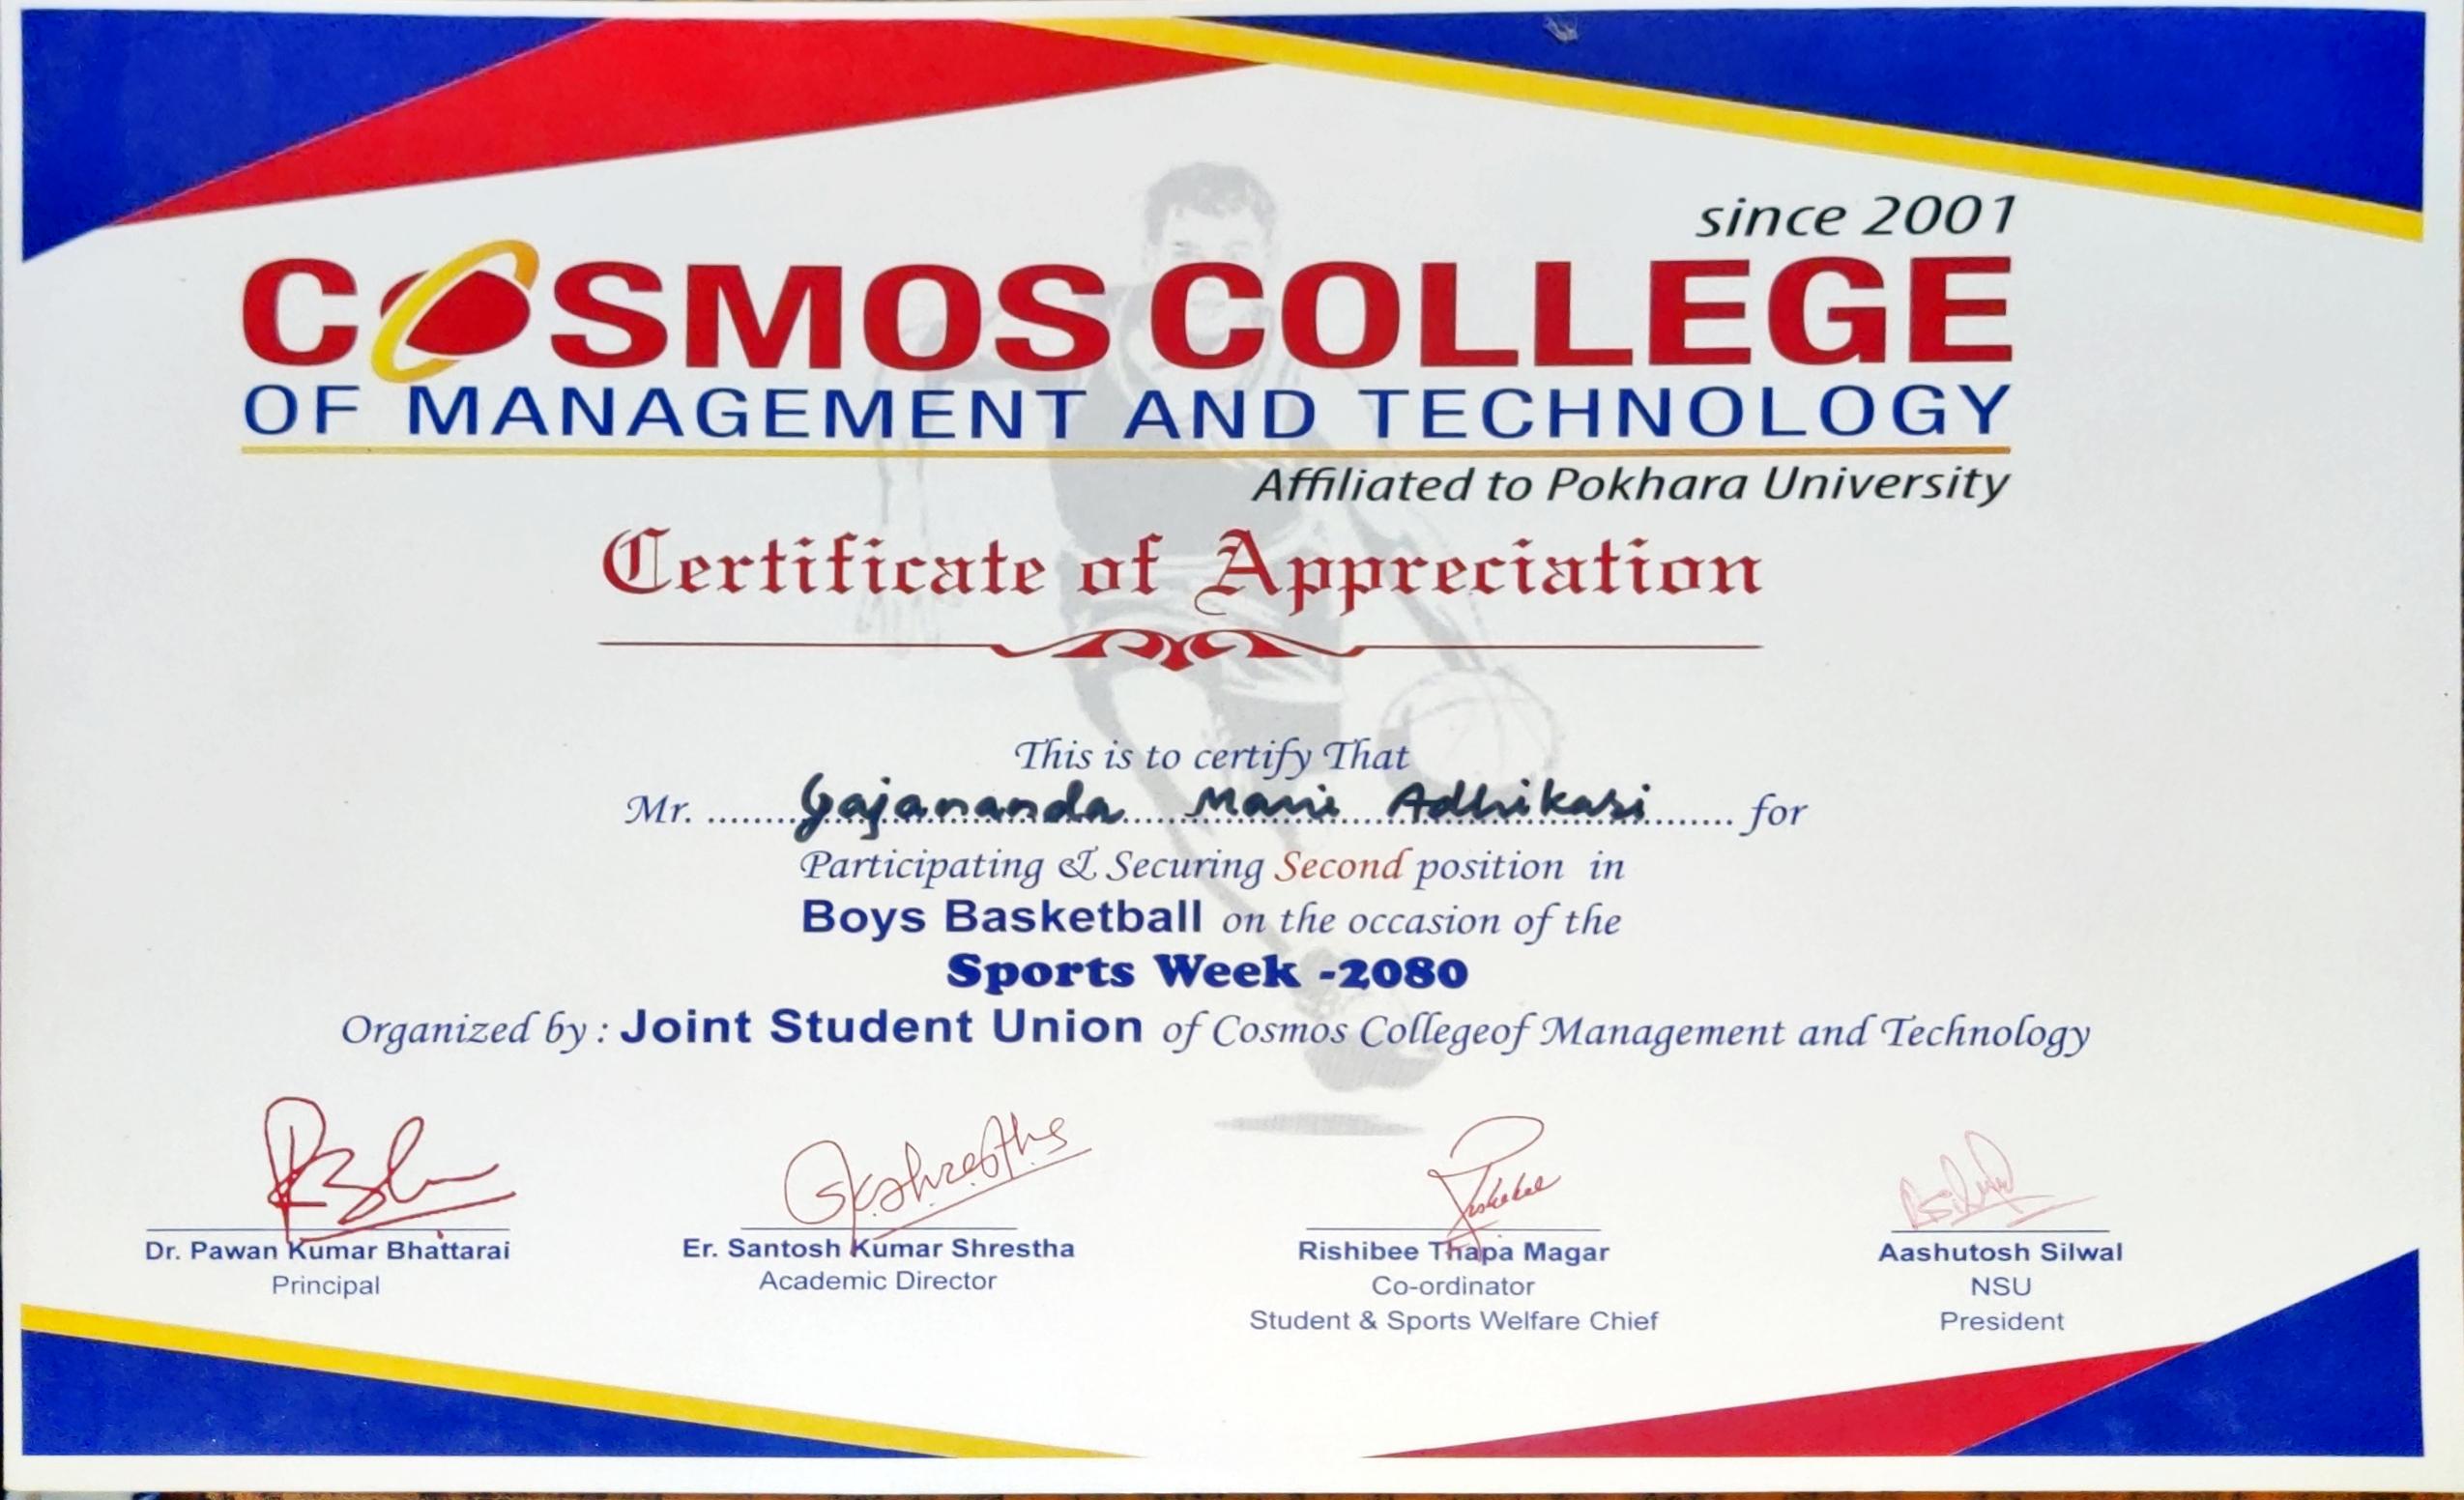 since 2001
COSMOS COLLEGE
OF MANAGEMENT AND TECHNOLOGY
Affiliated to Pokhara University
Certificate of Appreciation
This is to certify That
Mr. ........Gajananda Mani Adhikari........ for
Participating & Securing Second position in
Boys Basketball on the occasion of the
Sports Week -2080
Organized by : Joint Student Union of Cosmos Collegeof Management and Technology
Dr. Pawan Kumar Bhattarai
Principal
Er. Santosh Kumar Shrestha
Academic Director
Rishibee Thapa Magar
Co-ordinator
Student & Sports Welfare Chief
Aashutosh Silwal
NSU
President